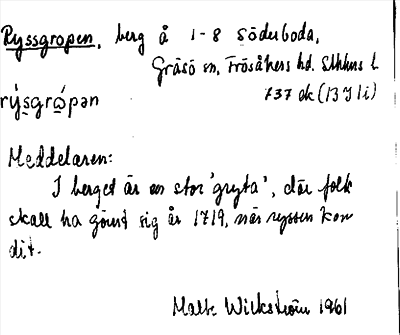 Ryssgropen, berg å 1-8 Söderboda,
Gräsö sn, Frösåkers hd. Sthlms l.
137 ek (13 I 1i)
rýsgrὼpən
Meddelaren:
I berget är en stor "gryta", där folk
skall ha gömt sig år 1719, när ryssen kom
dit.
Malte Wickström 1961